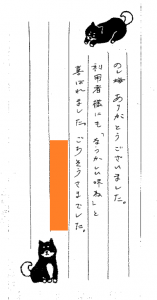 のし梅 ありがとうございました。
利用者様にも「なつかしい味ね」と
喜ばれました。ごちそうさまでした。